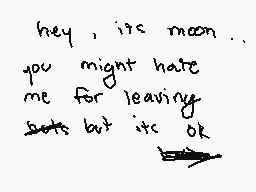 hey, its moon..
you might hate
me for leaving
but its ok